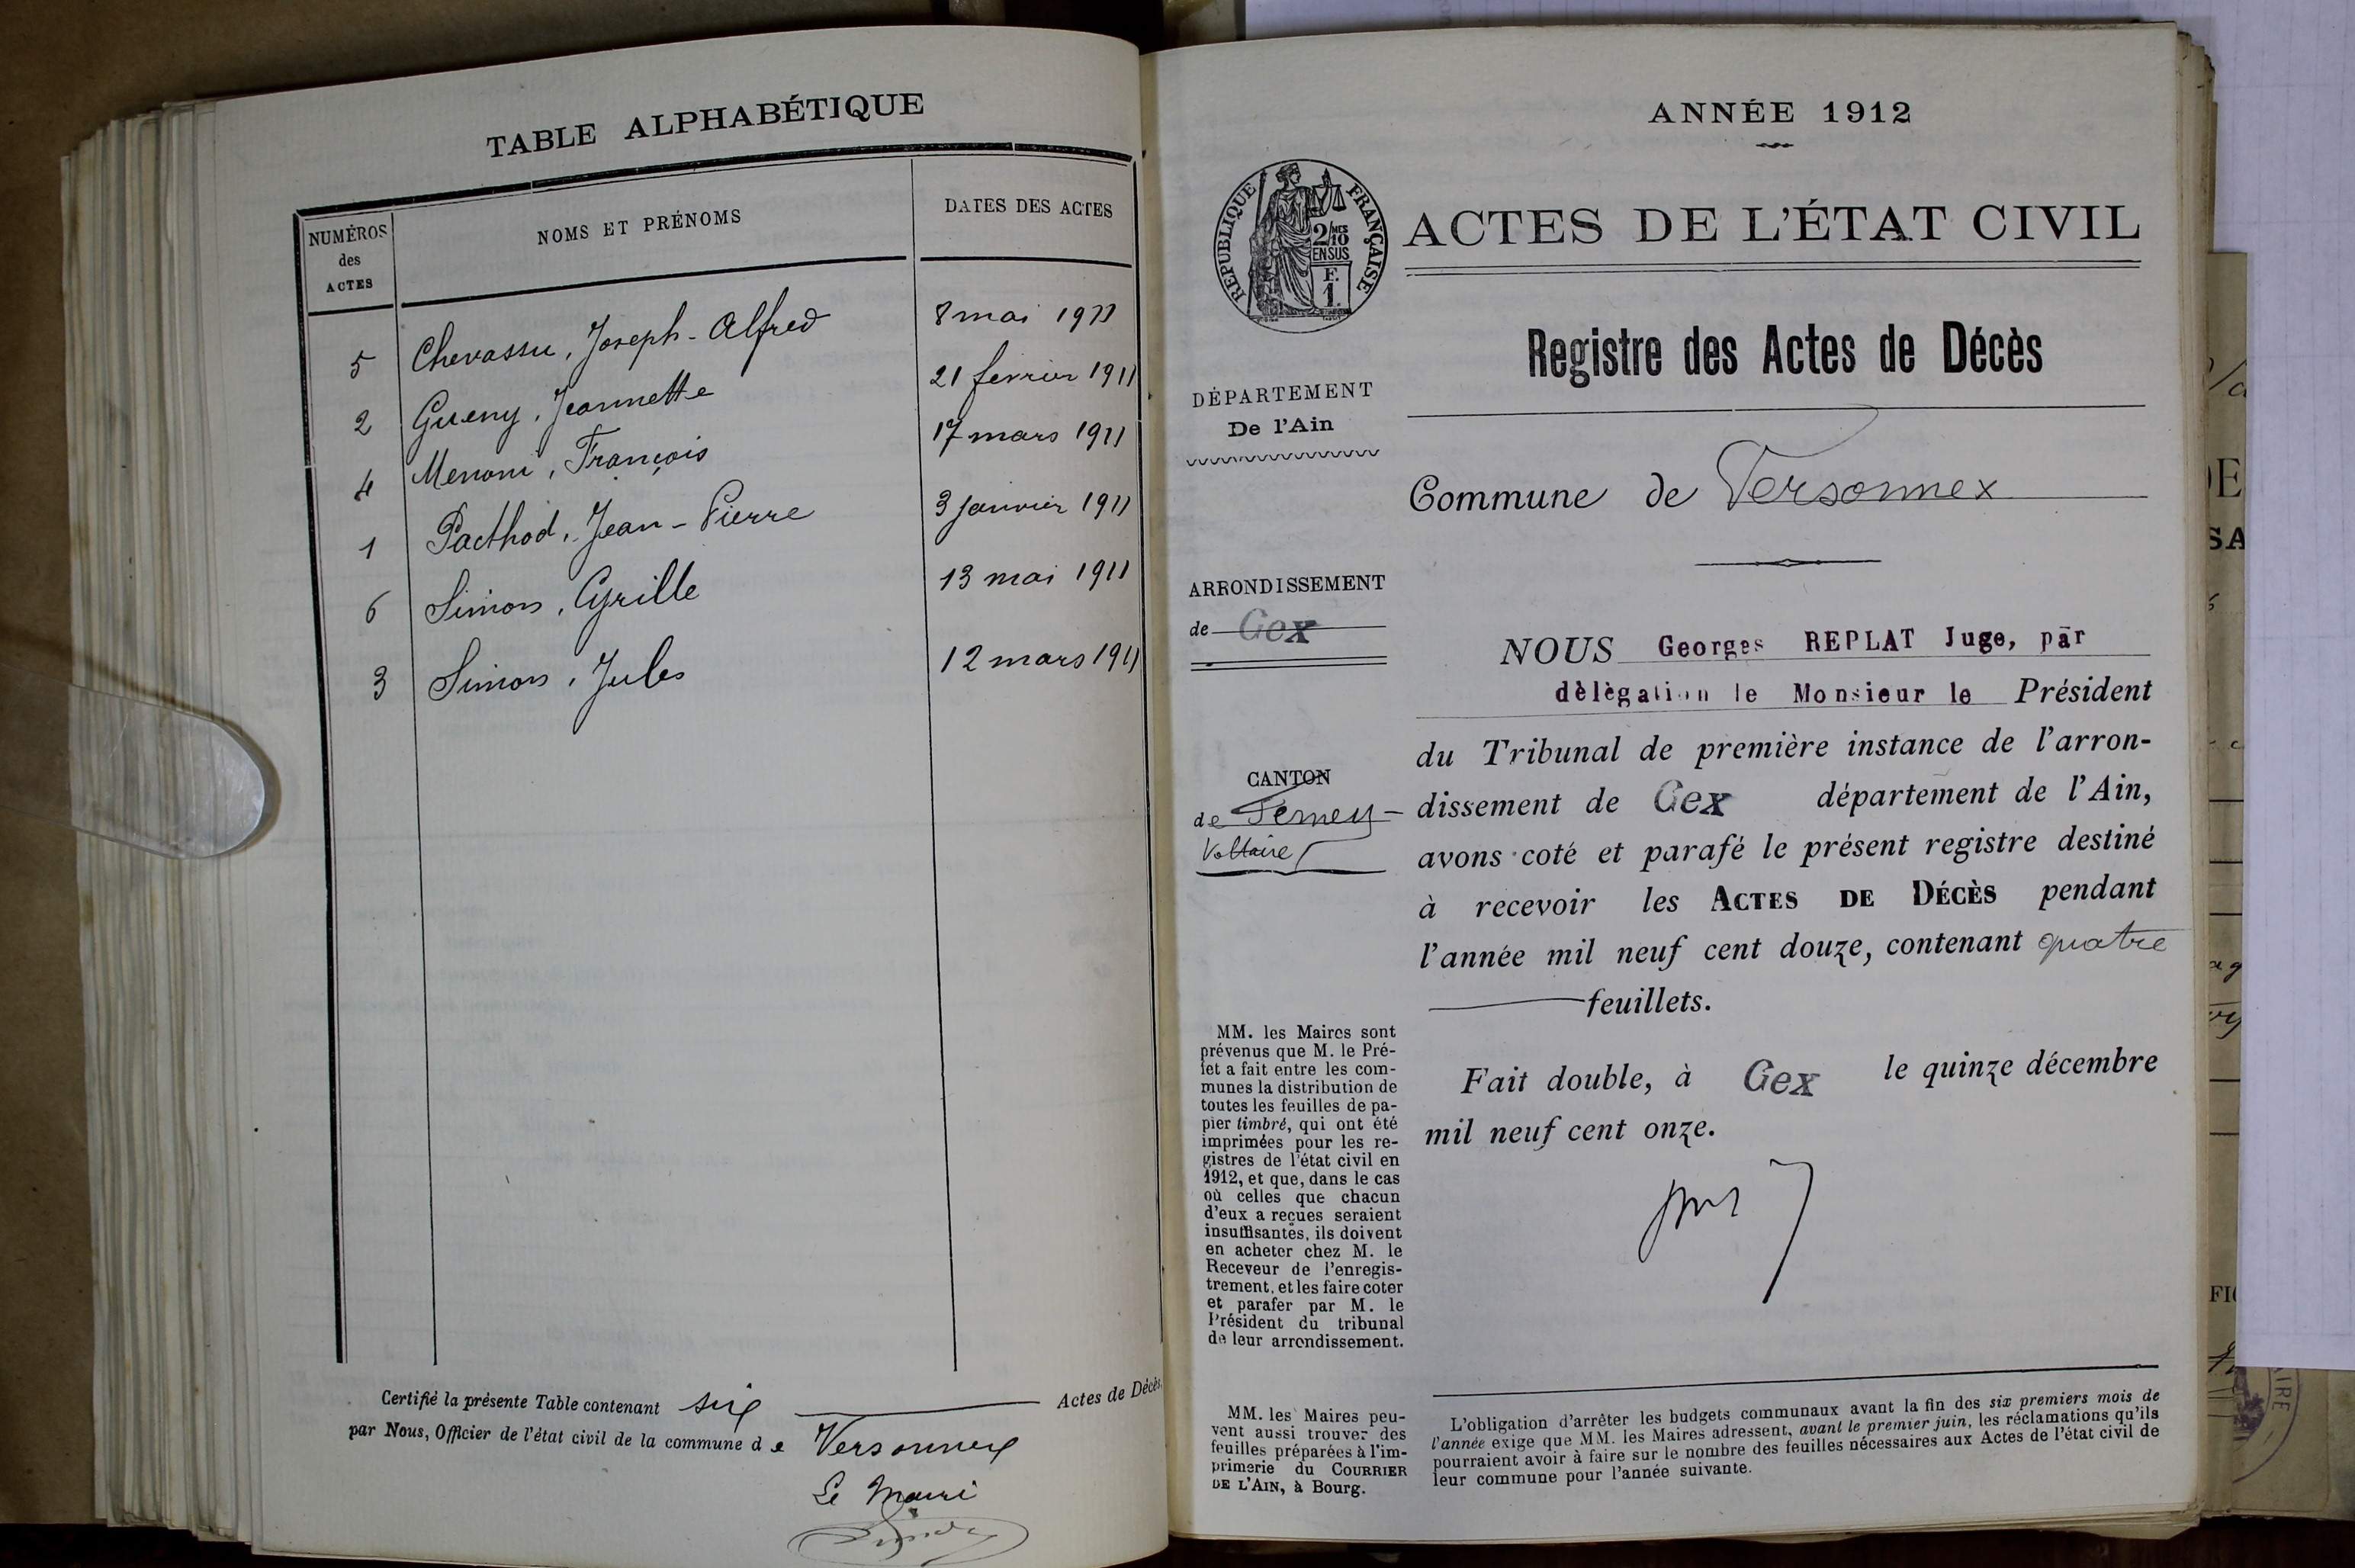 TABLE ALPHABÉTIQUE
NUMÉROS
des
ACTES
NOMS ET PRÉNOMS
DATES DES ACTES
5 Chevassu, Joseph-Alfred 8 mai 1911
2 Gueny, Jeannette 21 février 1911
4 Menoni, François 17 mars 1911
1 Pacthod, Jean-Pierre 3 janvier 1911
6 Simon, Cyrille 13 mai 1911
3 Simon, Jules 12 mars 1911
Certifié la présente Table contenant six Actes de Décès
par Nous, Officier de l'état civil de la commune de Versonnex
Le Maire
ANNÉE 1912
RÉPUBLIQUE FRANÇAISE
2/MES
10
EN SUS
F.
1.
ACTES DE L'ÉTAT CIVIL
Registre des Actes de Décès
DÉPARTEMENT
De l'Ain
Commune de Versonnex
ARRONDISSEMENT
de Gex
CANTON
de Ferney-
Voltaire
NOUS Georges REPLAT Juge, par
délégation de Monsieur le Président
du Tribunal de première instance de l'arron-
dissement de Gex département de l'Ain,
avons coté et parafé le présent registre destiné
à recevoir les ACTES DE DÉCÈS pendant
l'année mil neuf cent douze, contenant quatre
feuillets.
Fait double, à Gex le quinze décembre
mil neuf cent onze.
MM. les Maires sont
prévenus que M. le Pré-
fet a fait entre les com-
munes la distribution de
toutes les feuilles de pa-
pier timbré, qui ont été
imprimées pour les re-
gistres de l'état civil en
1912, et que, dans le cas
où celles que chacun
d'eux a reçues seraient
insuffisantes, ils doivent
en acheter chez M. le
Receveur de l'enregis-
trement, et les faire coter
et parafer par M. le
Président du tribunal
de leur arrondissement.
MM. les Maires peu-
vent aussi trouver des
feuilles préparées à l'im-
primerie du COURRIER
DE L'AIN, à Bourg.
L'obligation d'arrêter les budgets communaux avant la fin des six premiers mois de
l'année exige que MM. les Maires adressent, avant le premier juin, les réclamations qu'ils
pourraient avoir à faire sur le nombre des feuilles nécessaires aux Actes de l'état civil de
leur commune pour l'année suivante.